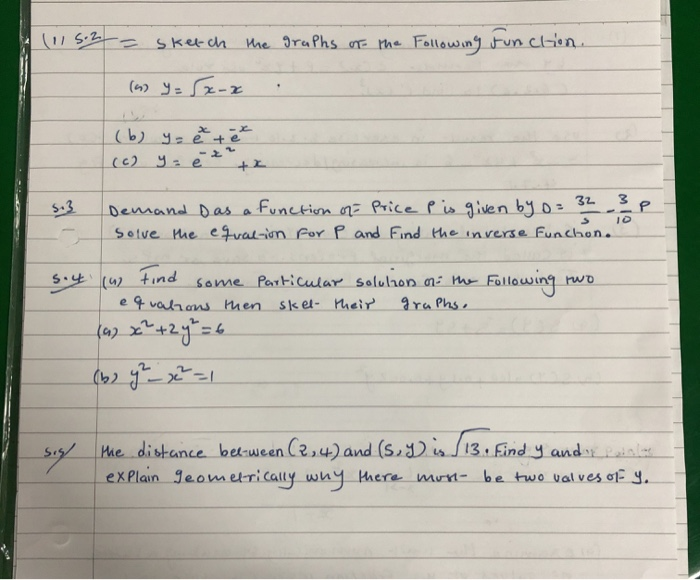 (1) 5.2 = sketch the graphs of the Following Function.
(a) y = √x - x
(b) y = e^x + e^-x
(c) y = e^-x^2 + x
5.3 Demand D as a Function of Price P is given by D = 32/5 - 3/10 P
Solve the equation For P and Find the inverse Function.
5.4 (a) Find some Particular solution of the Following two
equations then sket- their graphs.
(a) x² + 2y² = 6
(b) y² - x² = 1
5.5 the distance between (2,4) and (5,y) is √13. Find y and
explain geometrically why there must be two values of y.